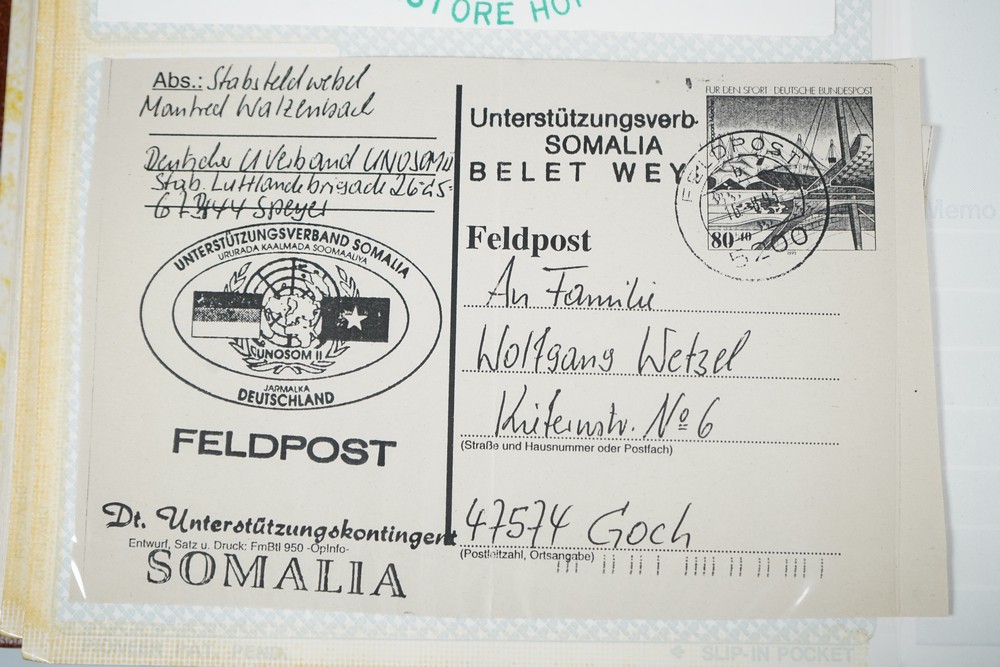 STORE HO
Abs.: Stabsfeldwebel
Manfred Walzenbach
Deutscher UVerband UNOSOM II
Stab. Luftlandebrigade 26-GS-
Speyer
UNTERSTÜTZUNGSVERBAND SOMALIA
URURADA KAALMADA SOOMAALIYA
UNOSOM II
JARMALKA
DEUTSCHLAND
FELDPOST
Dt. Unterstützungskontingent
Entwurf, Satz u. Druck: FmBtl 950 -OpInfo-
SOMALIA
Unterstützungsverb-
SOMALIA
BELET WEY
FÜR DEN SPORT · DEUTSCHE BUNDESPOST
80+40
FELDPOST
5200
Feldpost
An Familie
Wolfgang Wetzel
Kiefernstr. No 6
(Straße und Hausnummer oder Postfach)
47574 Goch
(Postleitzahl, Ortsangabe)
Memo
PIONEER PAT. PEND.
SLIP-IN POCKET